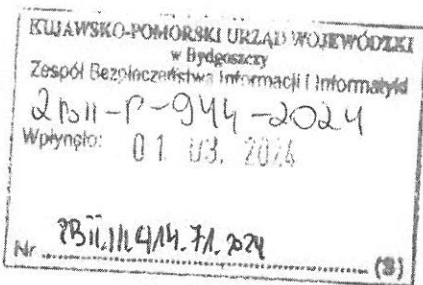 KUJAWSKO-POMORSKI URZĄD WOJEWÓDZKI
w Bydgoszczy
Zespół Bezpieczeństwa Informacji i Informatyki
ZBII-P-944-2024
Wpłynęło: 01 03. 2024
Nr (S)